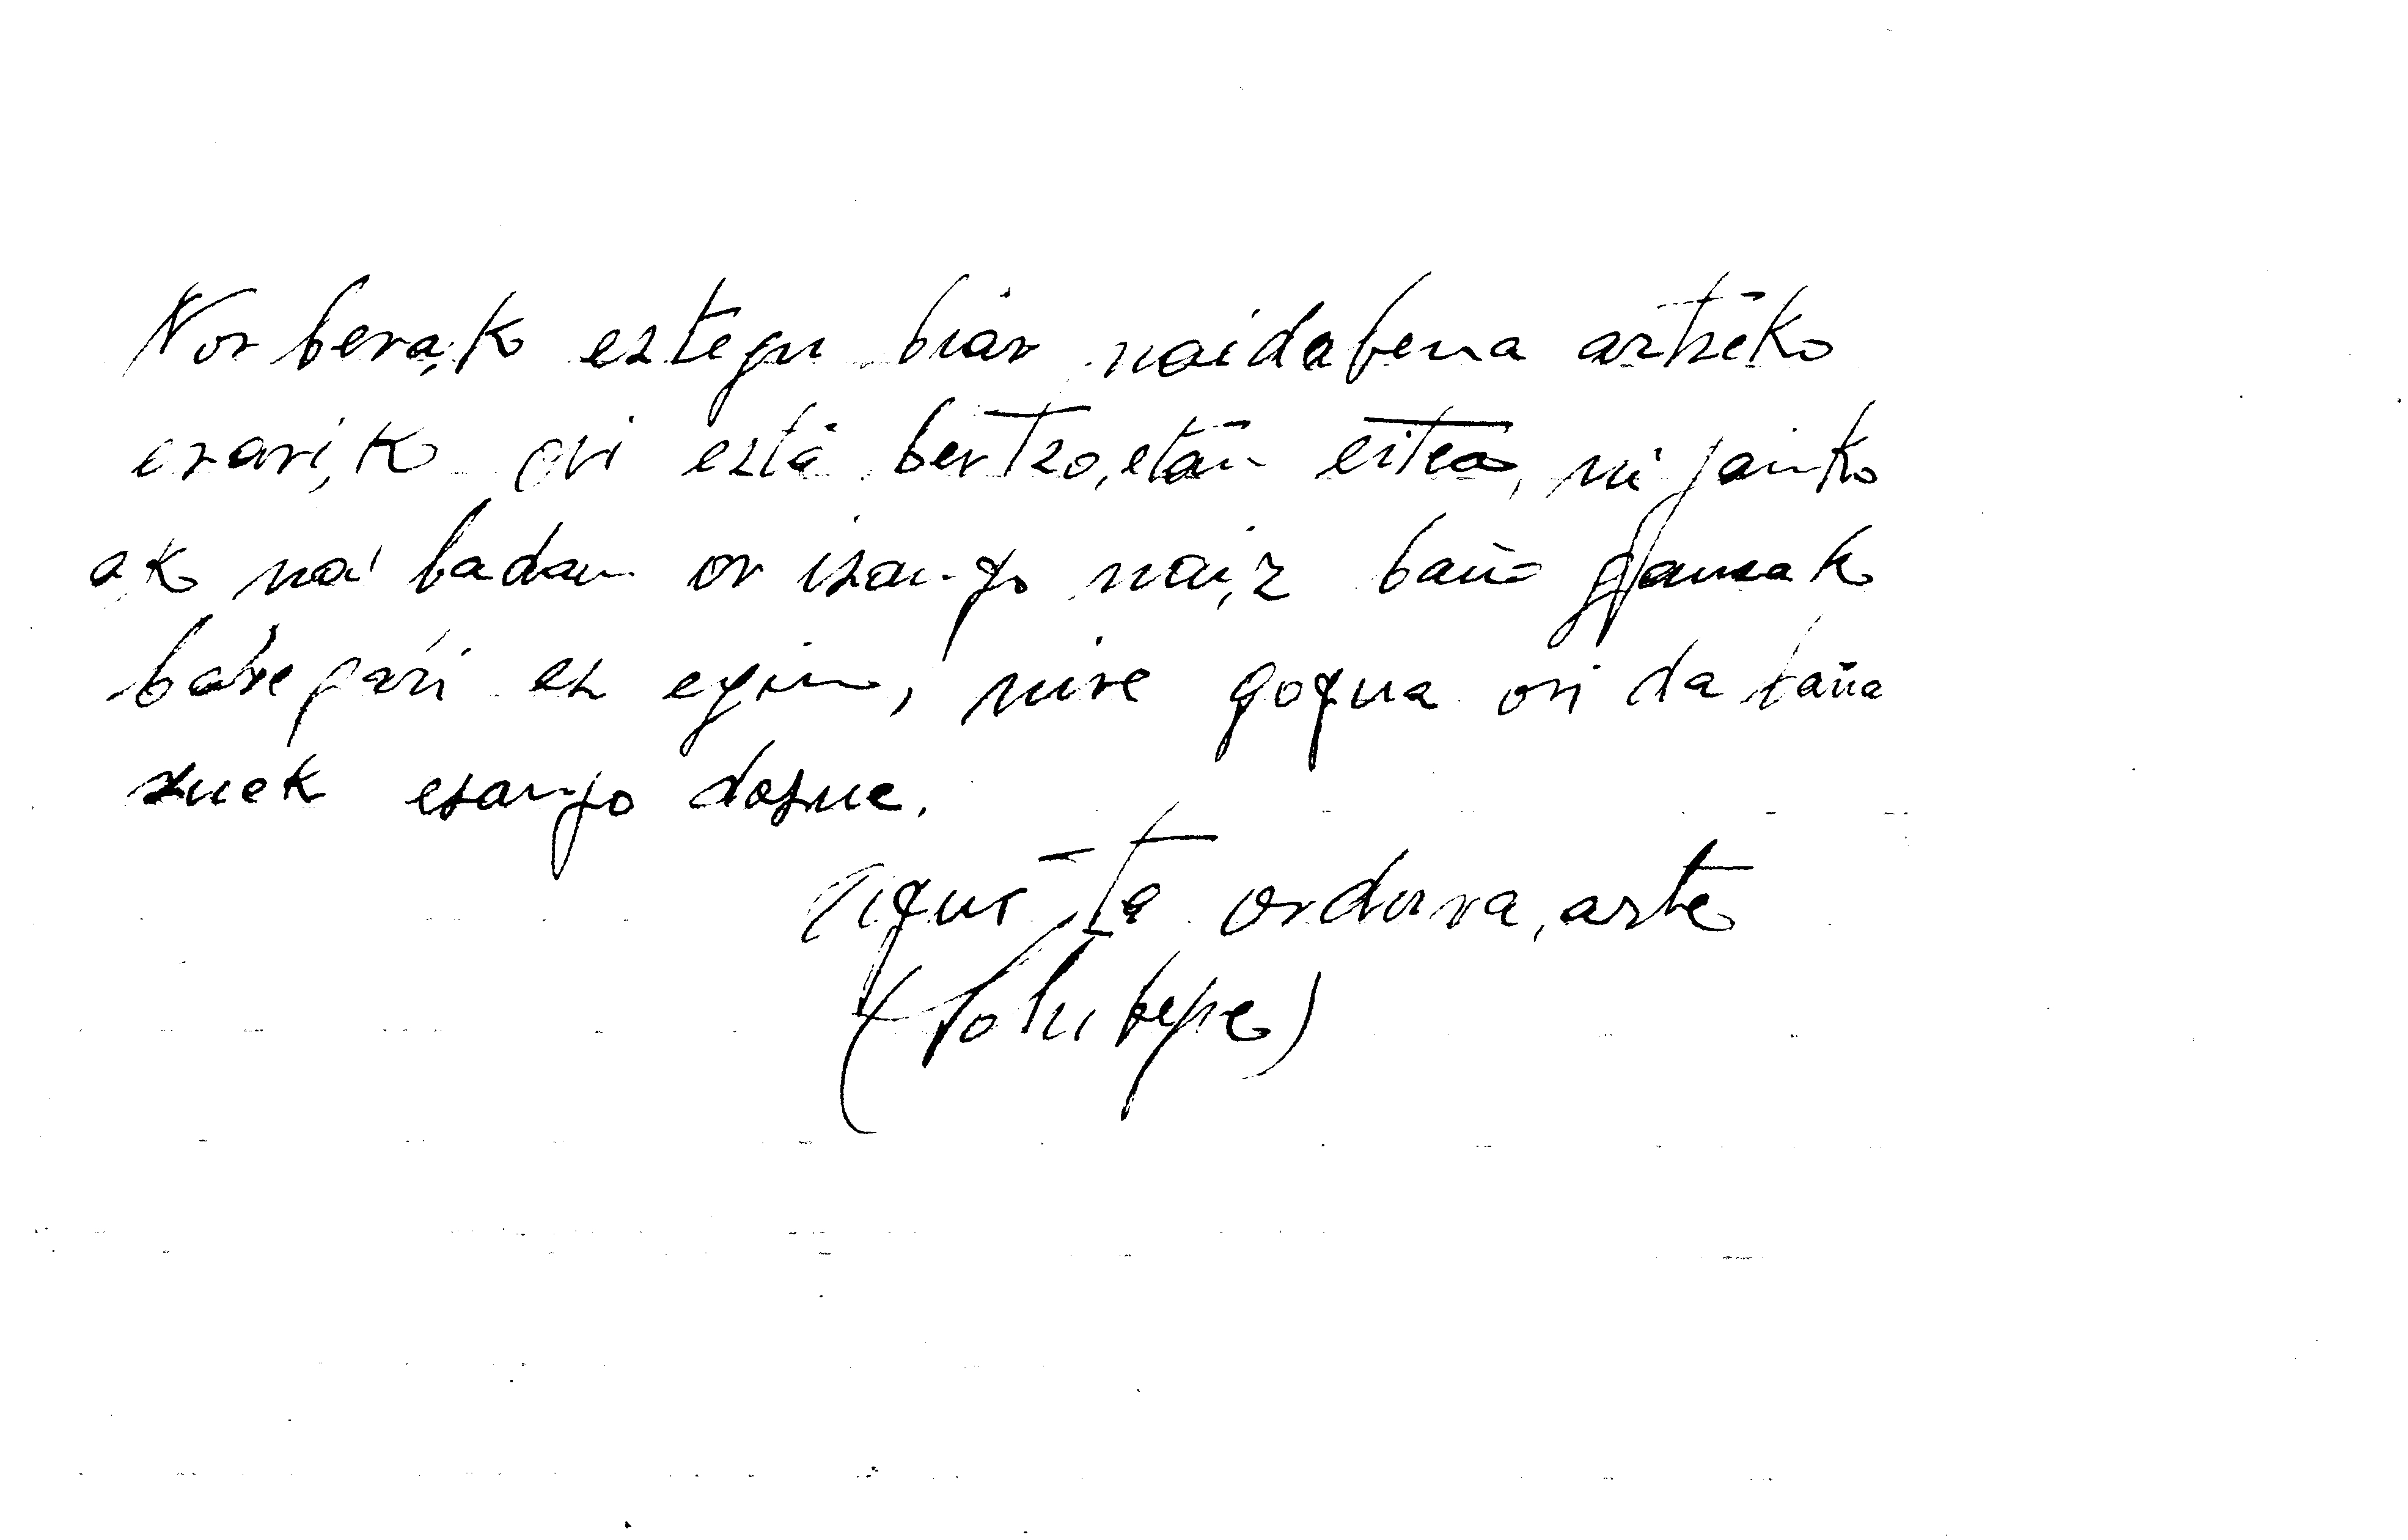 Nor bera,k eztegu biar naidabena artzeko
ezari,k ori esta bertzo,etan eitea, ni jainko
ak nai badau or izango nai,z baña gauzak
ez egin, nire gogua ori da baña
zuek esango dozue.
Agur ta ordura,arte